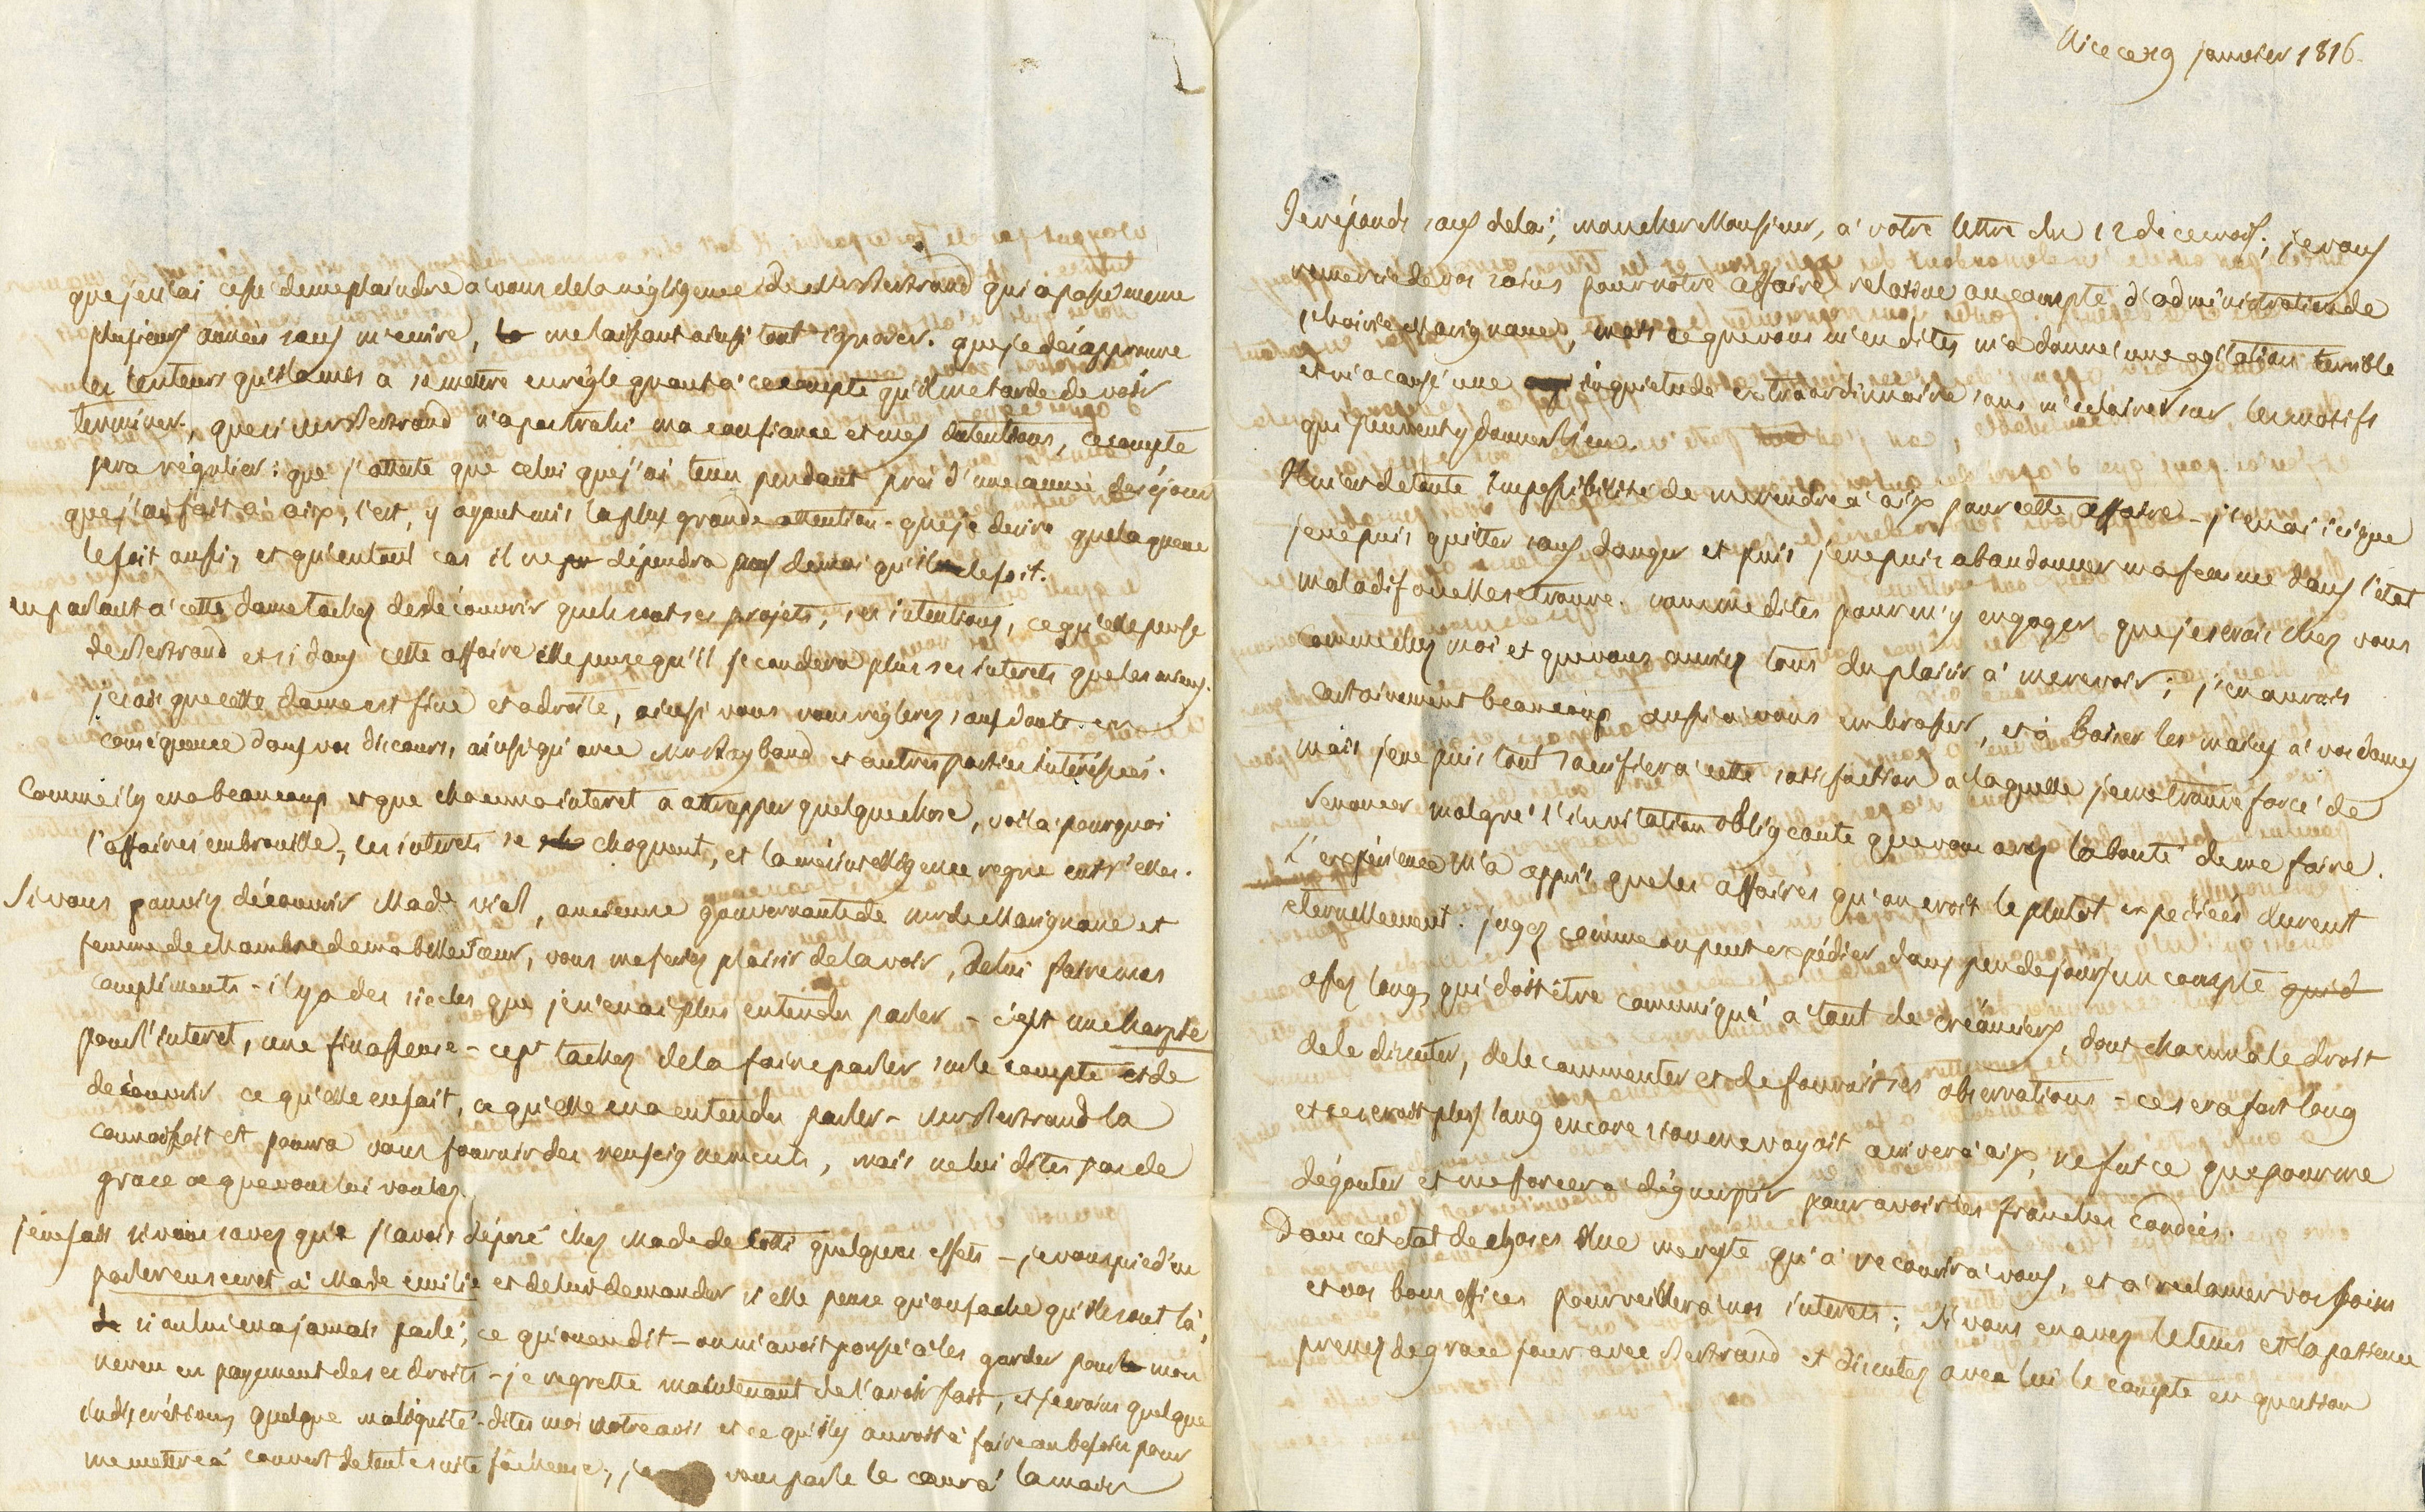 Nice ce 19 janvier 1816.
Je réponds sans delai, mon cher Monsieur, a' votre lettre du 12 de ce mois; je vous
remercie de vos soins pour notre affaire relative au compte d'administration de
l'hoirie Marignane, mais ce que vous m'en dites m'a donné une agitation terrible
et m'a causé une inquietude extraordinnaire sans m'eclairer sur les motifs
qui peuvent y donner lieu.
Il m'est de toute Impossibilité de me rendre a' aix pour cette affaire - j'en ai ici que
je ne puis quitter sans danger et puis je ne puis abandonner ma femme dans l'état
maladif ou elle se trouve. vous me dites pour m'y engager que je serais chez vous
comme chez moi et que vous auriez tous du plaisir a' me revoir; j'en aurais
certainement beaucoup aussi a' vous embrasser, et à baiser les mains a' vos dames
mais je ne puis tout sacrifier a' cette satisfaction a laquelle je me trouve forcé de
renoncer malgré l'invitation obligeante que vous avez la bonté de me faire.
L'expérience m'a appris que les affaires qu'on croit le plutot expediées durent
eternellement. jugez comme on peut expédier dans peu de jours un compte
assez long, qui doit être comuniqué a tant de créanciers, dont chacun a le droit
de le discuter, de le commenter et de fournir ses observations - ce sera fort long
et ce seroit plus long encore si on me voyoit arriver a' aix, ne fut ce que pour me
dégouter et me forcer a déguerpir pour avoir les franches
Dans cet etat de choses il ne me reste qu'a' recourir a' vous, et a' reclamer vos soins
et vos bons offices pour veiller a' nos interets; si vous en avez le tems et la patience
prenez de grace jour avec Bertrand et discutez avec lui le compte en question
que je n'ai cessé de me plaindre a' vous de la négligence de Mr Bertrand qui a passé meme
plusieurs années sans m'ecrire, me laissant ainsi tout ignorer. que je désapprouve
les lenteurs qu'il a mis a se mettre en règle quant a' ce compte qu'il me tarde de voir
terminer, que si Mr Bertrand n'a pas trahi ma confiance et mes intentions, ce compte
sera régulier: que j'atteste que celui que j'ai tenu pendant près d'une année de séjour
que j'ai fait a' aix, l'est, y ayant mis la plus grande attention - que je desire que la queue
le soit aussi, et qu'en tout cas il ne dépendra pas de moi qu'il le soit.
en parlant a' cette dame tachez de découvrir quels sont ses projets, ses intentions, ce qu'elle pense
de Bertrand et si dans cette affaire elle pense qu'il secondera plus ses interets que les miens.
je sais que cette dame est fine et adroite, ainsi vous vous reglerez sans doute en
conséquence dans vos discours, ainsi qu'avec Mr Raybaud et autres parties intéréssées.
Comme il y en a beaucoup et que chacun a interet a attrapper quelque chose, voila' pourquoi
l'affaire s'embrouille, les interets se choquent, et la mésintelligence regne entr'elles.
Si vous pouviez découvrir Made vial, ancienne gouvernante de Mr de Marignane et
femme de chambre de ma belle sœur, vous me feriez plaisir de la voir, de lui faire mes
compliments - il y a des siecles que je n'en ai plus entendu parler - c'est une harpie
pour l'interet, une finasseuse - cept tachez de la faire parler sur le compte et de
découvrir ce qu'elle en sait, ce qu'elle en a entendu parler - Mr Bertrand la
connaissoit et pourra vous fournir des renseignements, mais ne lui dites pas de
grace ce que vous lui voulez.
je ne sais si vous savez que j'avois déposé chez Made de quelques effets - je vous prie d'en
parler en secret a' Made emilie et de lui demander si elle pense qu'on sache qu'ils sont là,
si on lui en a jamais parlé, ce qu'on en dit - on m'avoit poussé a' les garder pour mon
neveu en payement de ses droits - je regrette maintenant de l'avoir fait, et je crains quelque
indiscrétion, quelque malignité - dites moi votre avis et ce qu'il y auroit a' faire au besoin pour
me mettre a' couvert de toute suite fâcheuse, je vous parle le cœur a' la main